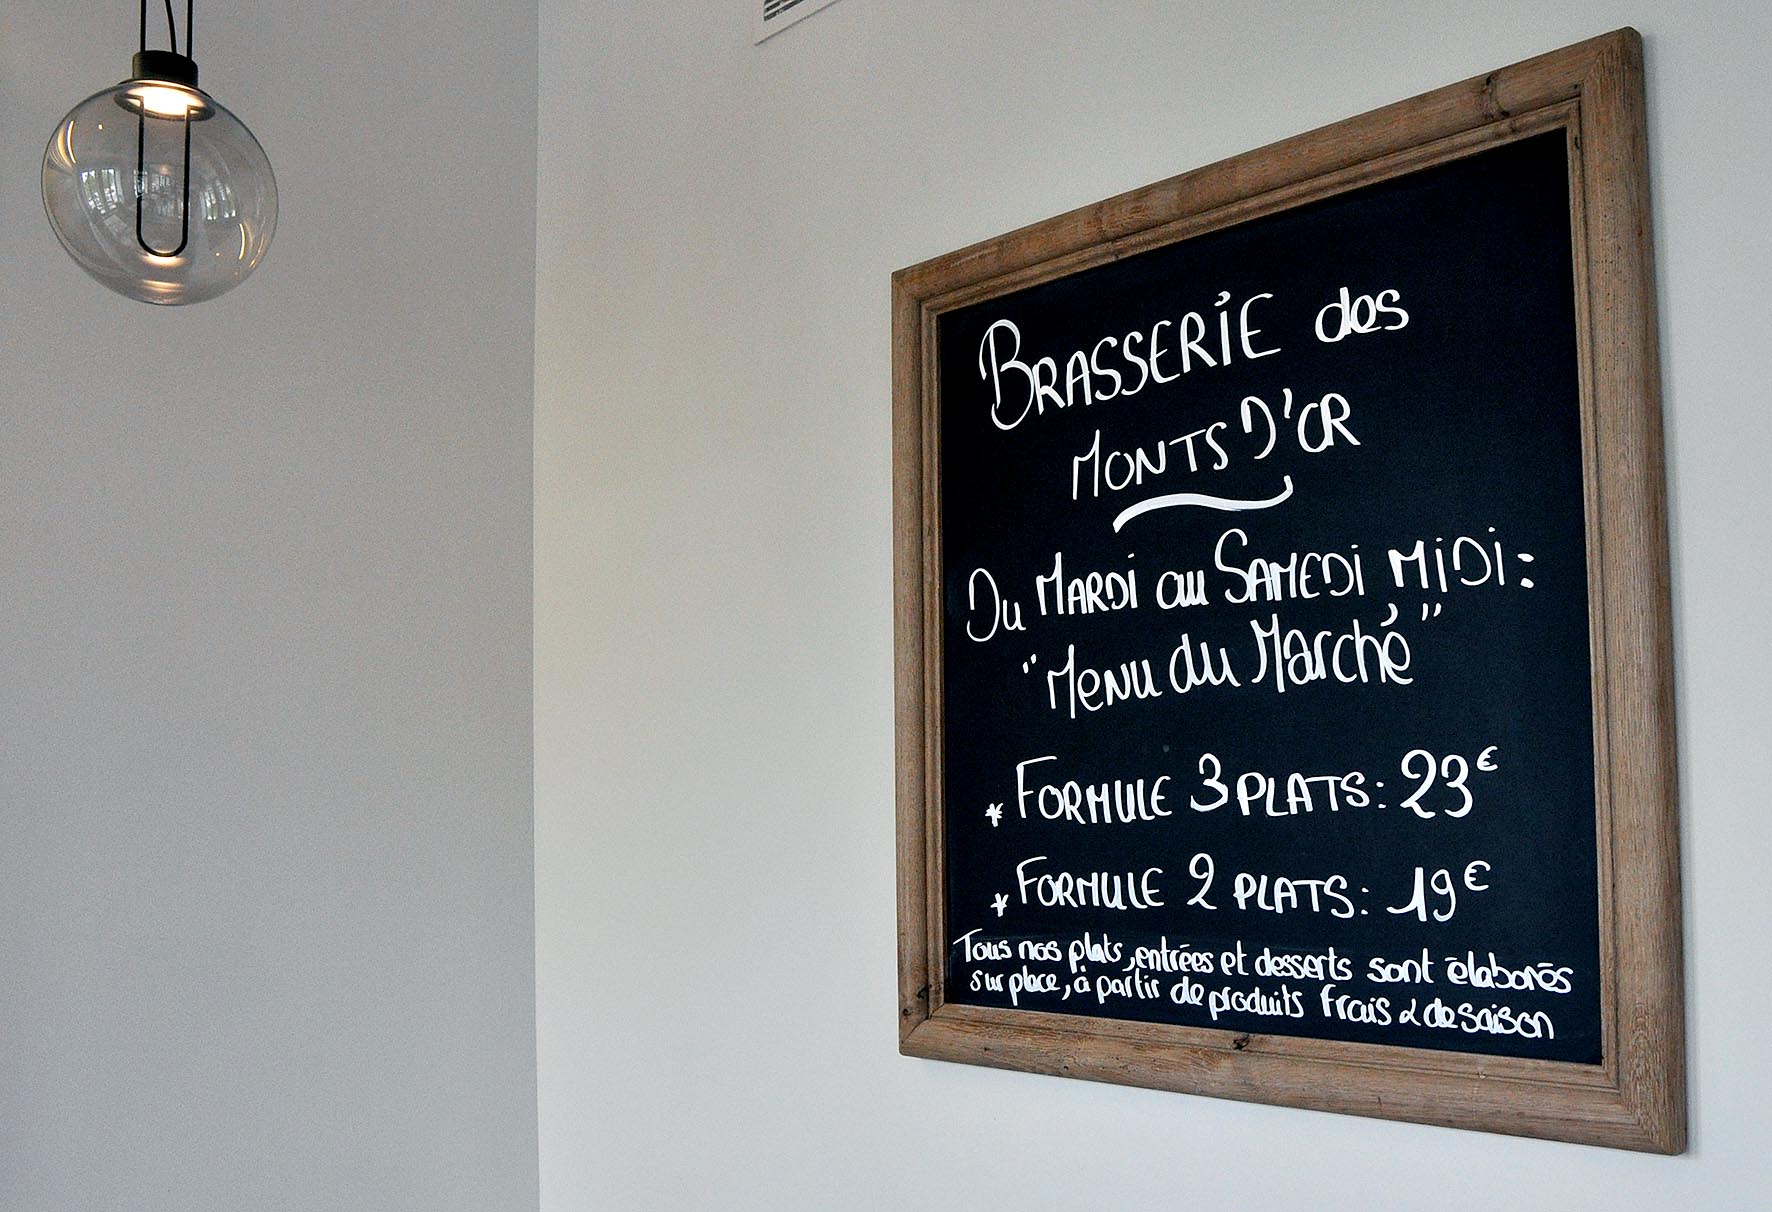 BRASSERIE des
MONTS D'OR
Du MARDI au SAMEDI MIDI :
"Menu du Marché"
* FORMULE 3 PLATS : 23€
* FORMULE 2 PLATS : 19€
Tous nos plats, entrées et desserts sont élaborés
sur place, à partir de produits frais & de saison